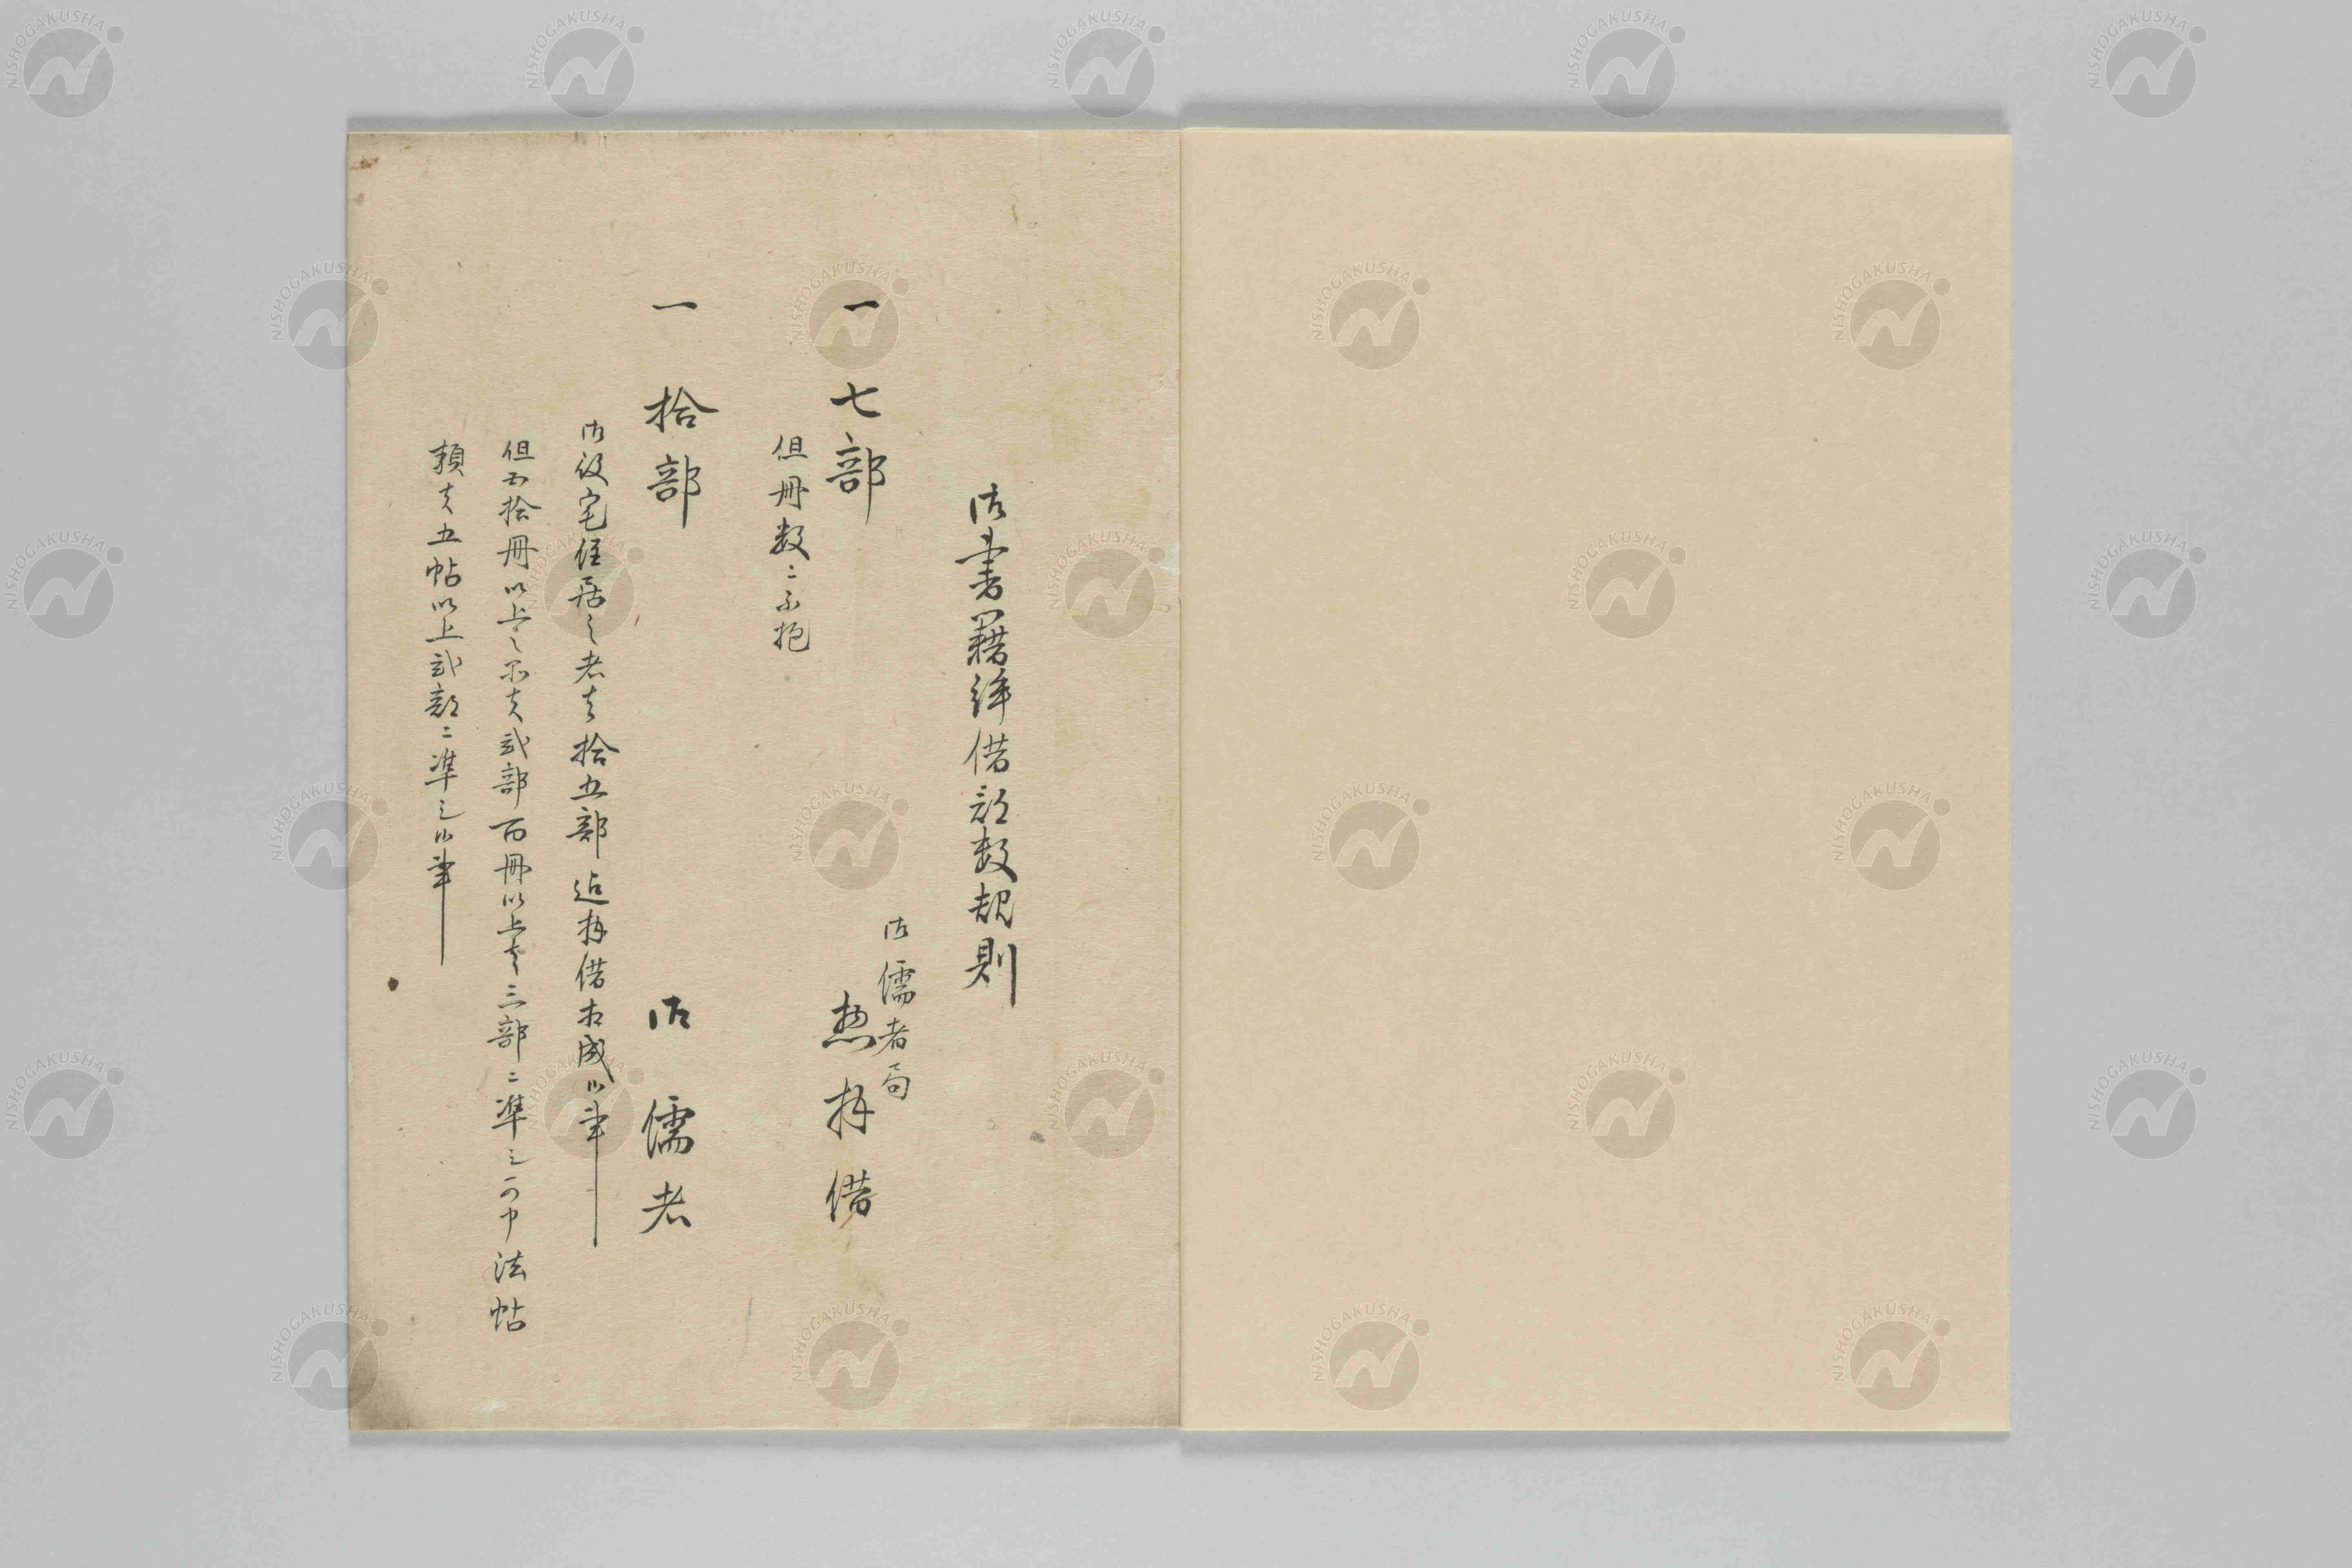 御書籍拝借部数規則
御儒者局
一 七部 惣拝借
但冊数ニ不抱
一 拾部 御儒者
御役宅住居之者者拾五部迄拝借相成候事
但五拾冊以上之品者弐部百冊以上者三部ニ準之可申法帖
類者五帖以上弐部ニ準之候事
NISHOGAKUSHA